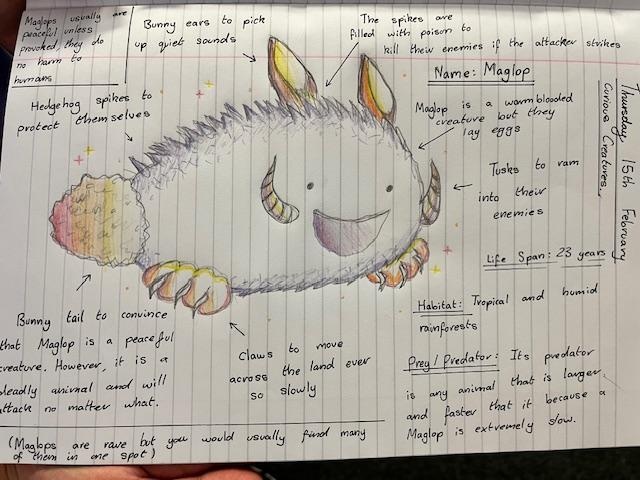 Maglops usually are
peaceful unless
provoked, they do
no harm to
humans
Bunny ears to pick
up quiet sounds
The spikes are
filled with poison to
kill their enemies if the attacker strikes
Name: Maglop
Thursday 15th February
Curious Creatures
Hedgehog spikes to
protect themselves
Maglop is a warmblooded
creature but they
lay eggs
Tusks to ram
into their
enemies
Life Span: 23 years
Habitat: Tropical and humid
rainforests
Prey/Predator: Its predator
is any animal that is larger
and faster that it because a
Maglop is extremely slow.
Bunny tail to convince
that Maglop is a peaceful
creature. However, it is a
deadly animal and will
attack no matter what.
Claws to move
across the land ever
so slowly
(Maglops are rare but you would usually find many
of them in one spot)